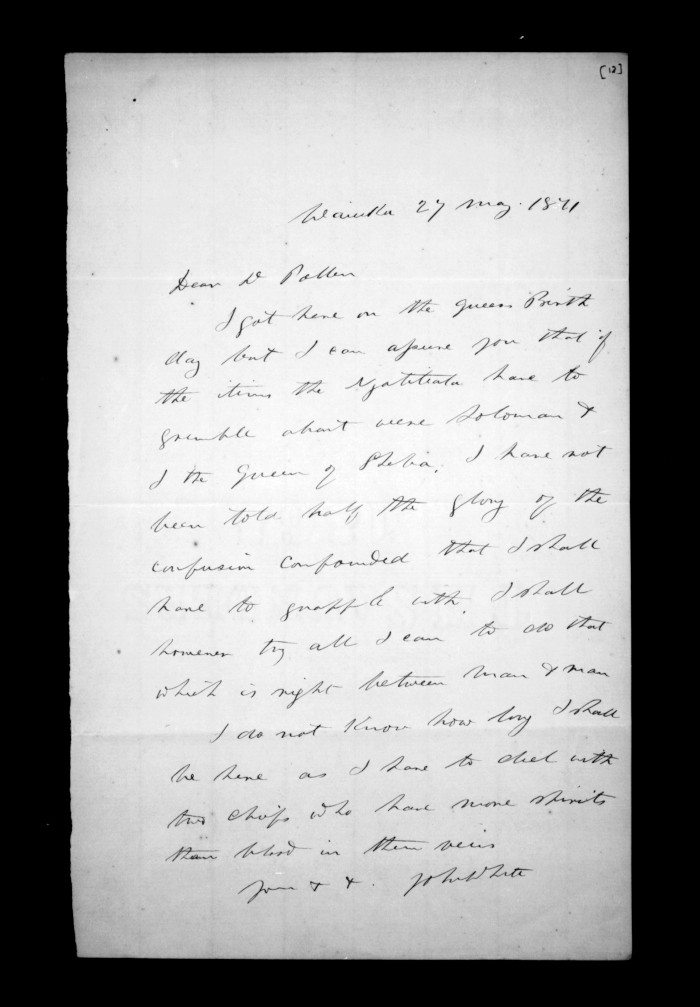 [12]
27 May 1871
Dear Dr Pollen
I got here on the Queens Birth
day but I can assure you that if
the items the have to
grumble about were Soloman &
I the Queen of Sheba, I have not
been told half the glory of the
confusion confounded that I shall
have to grapple with, I shall
however try all I can to do that
which is right between man & man
I do not know how long I shall
be here as I have to deel with
two chiefs who have more spirits
than blood in their veins
your & &. John White